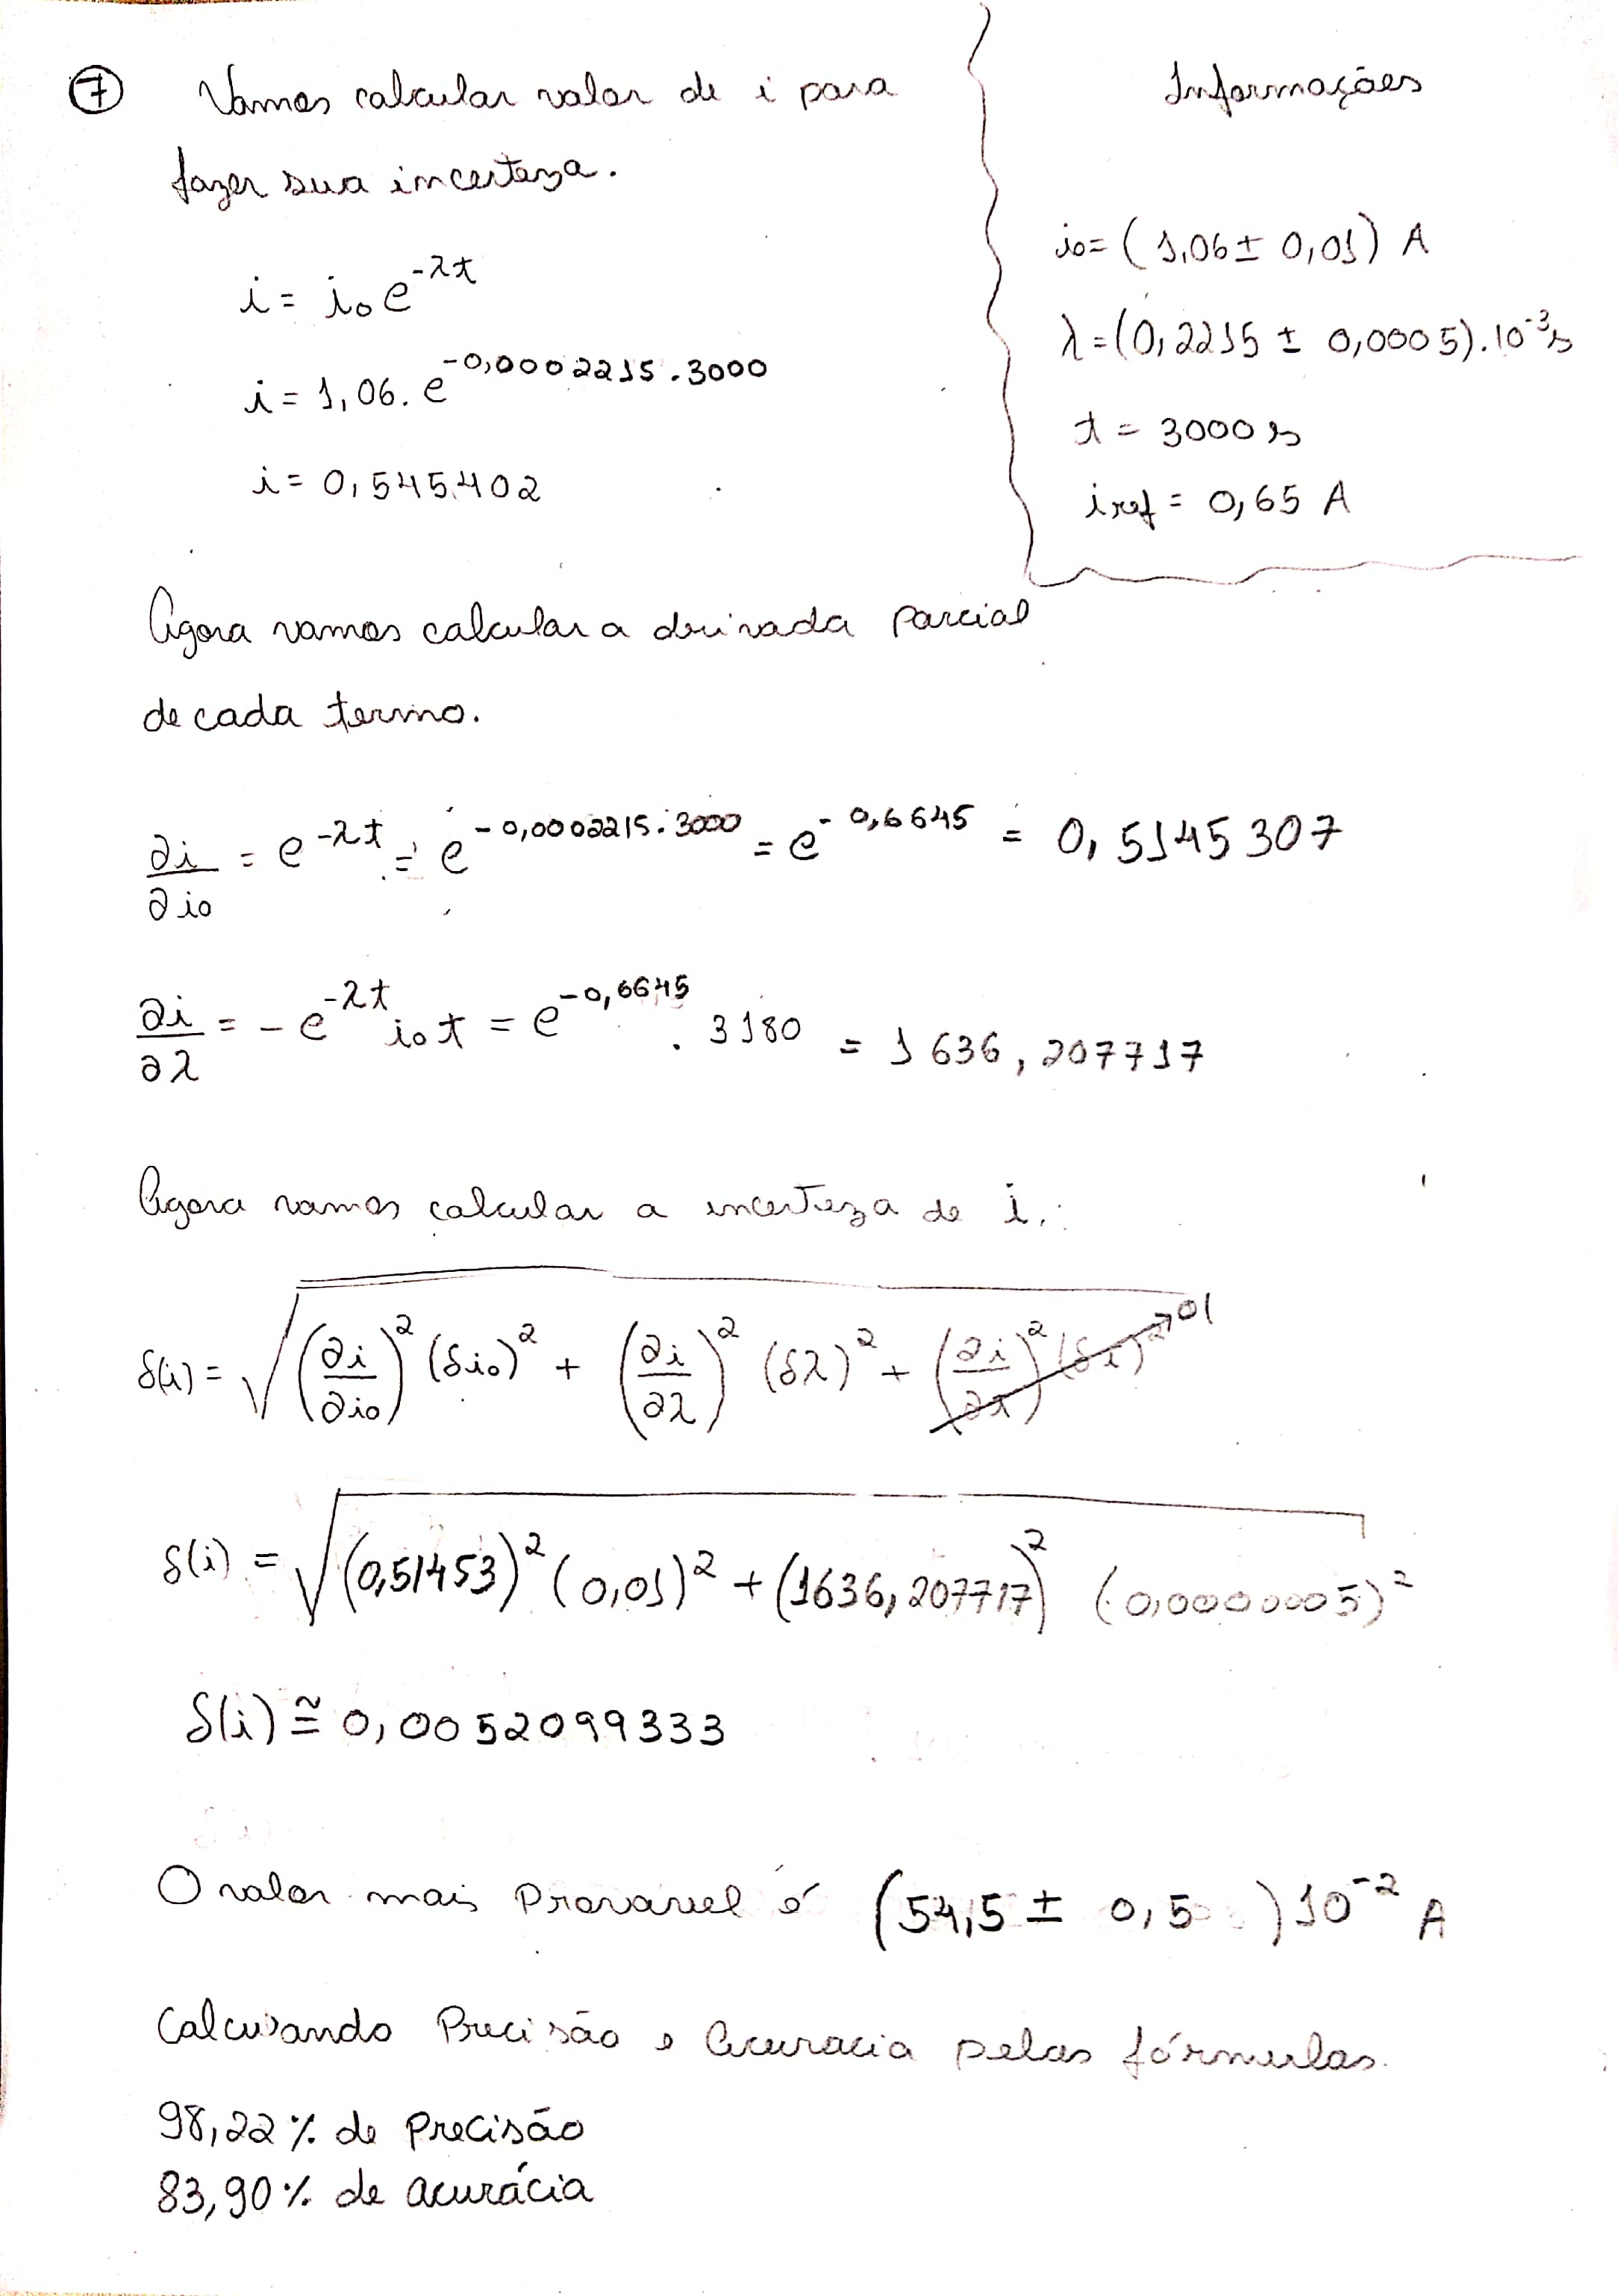 ⑦ Vamos calcular valor de i para
fazer sua incerteza.
i = i₀ e^-λt
i = 1,06 . e^-0,0002215 . 3000
i = 0,545402
Informações
i₀ = (1,06 ± 0,01) A
λ = (0,2215 ± 0,0005).10⁻³s
t = 3000 s
iref = 0,65 A
Agora vamos calcular a derivada parcial
de cada termo.
∂i/∂i₀ = e^-λt = e^-0,0002215 . 3000 = e^-0,6645 = 0,5145307
∂i/∂λ = -e^-λt i₀ t = e^-0,6645 . 3180 = 1636,207717
Agora vamos calcular a incerteza de i.
δ(i) = √(∂i/∂i₀)² (δi₀)² + (∂i/∂λ)² (δλ)² + (∂i/∂t)² (δt)² → 0
δ(i) = √(0,51453)² (0,01)² + (1636,207717)² (0,0000005)²
δ(i) ≅ 0,0052099333
O valor mais provavel é (54,5 ± 0,5) 10⁻² A
Calculando Precisão e Acuracia pelas fórmulas.
98,22 % de Precisão
83,90 % de acurácia